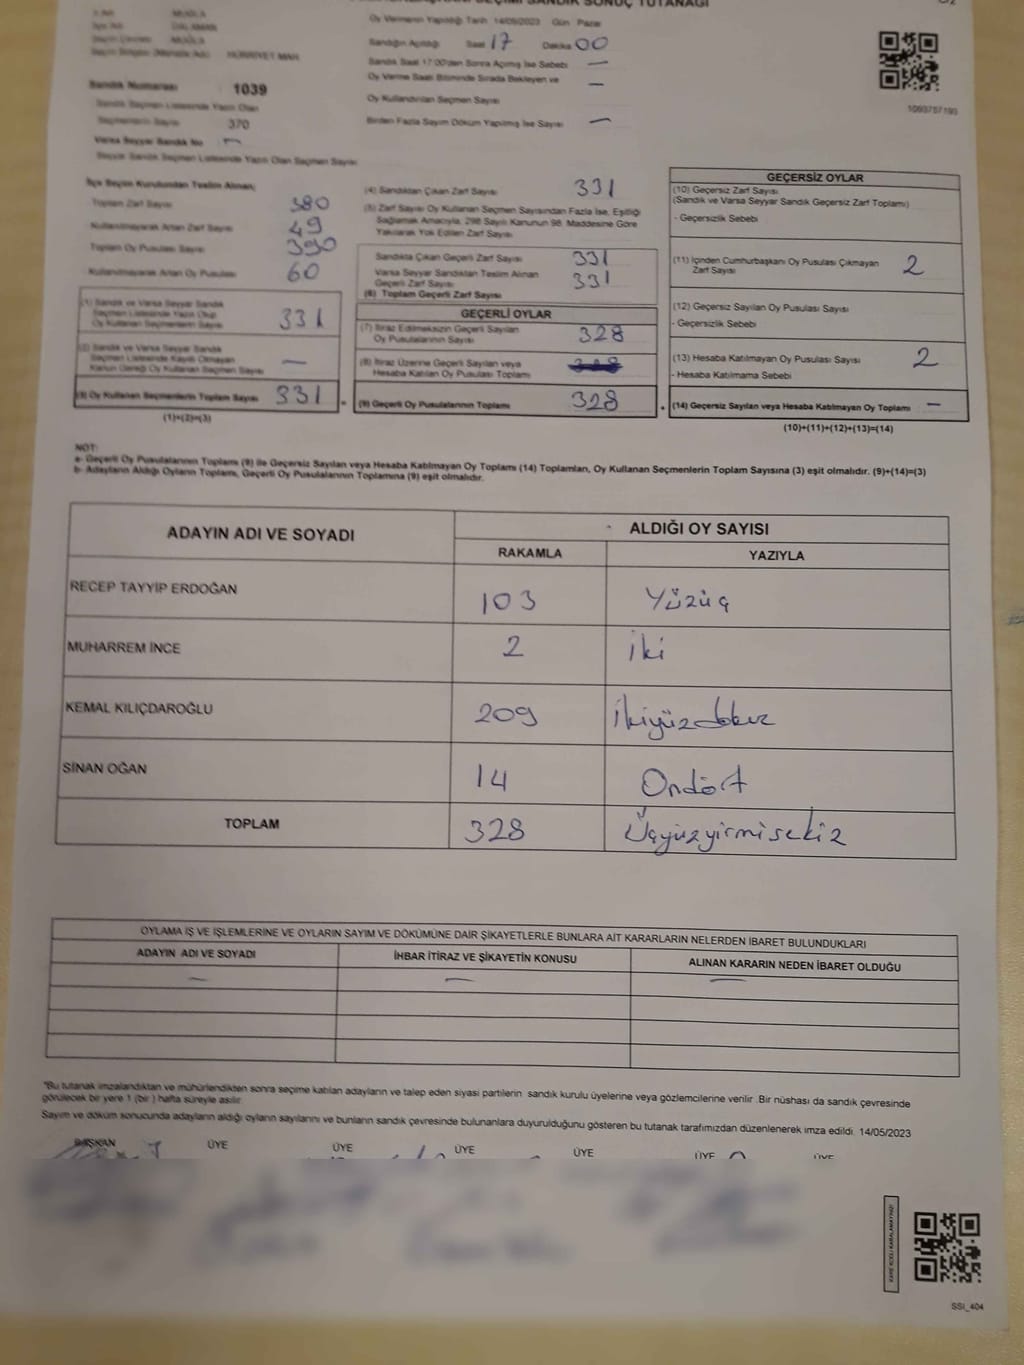 SANDIK SONUÇ TUTANAĞI
MUĞLA
DALAMAN
MUĞLA
HÜRRİYET MAH.
Oy Vermenin Yapıldığı Tarih 14/05/2023 Gün Pazar
Sandığın Açıldığı Saat 17 Dakika 00
Sandık Saat 17:00'den Sonra Açılmış İse Sebebi —
Oy Verme Saati Bitiminde Sırada Bekleyen ve
Oy Kullandırılan Seçmen Sayısı —
Birden Fazla Sayım Döküm Yapılmış İse Sayısı —
1093757193
Sandık Numarası 1039
Sandık Seçmen Listesinde Yazılı Olan
Seçmenlerin Sayısı 370
Varsa Seyyar Sandık No —
Seyyar Sandık Seçmen Listesinde Yazılı Olan Seçmen Sayısı
İlçe Seçim Kurulundan Teslim Alınan;
Toplam Zarf Sayısı 380
Kullanılmayarak Artan Zarf Sayısı 49
Toplam Oy Pusulası Sayısı 390
Kullanılmayarak Artan Oy Pusulası 60
(1) Sandık ve Varsa Seyyar Sandık
Seçmen Listesinde Yazılı Olup
Oy Kullanan Seçmenlerin Sayısı 331
(2) Sandık ve Varsa Seyyar Sandık
Seçmen Listesinde Kayıtlı Olmayan
Kanun Gereği Oy Kullanan Seçmen Sayısı —
(3) Oy Kullanan Seçmenlerin Toplam Sayısı 331
(1)+(2)=(3)
(4) Sandıktan Çıkan Zarf Sayısı 331
(5) Zarf Sayısı Oy Kullanan Seçmen Sayısından Fazla İse, Eşitliği
Sağlamak Amacıyla, 298 Sayılı Kanunun 98. Maddesine Göre
Yakılarak Yok Edilen Zarf Sayısı
Sandıkta Çıkan Geçerli Zarf Sayısı 331
Varsa Seyyar Sandıktan Teslim Alınan
Geçerli Zarf Sayısı 331
(6) Toplam Geçerli Zarf Sayısı
GEÇERLİ OYLAR
(7) İtiraz Edilmeksizin Geçerli Sayılan
Oy Pusulalarının Sayısı 328
(8) İtiraz Üzerine Geçerli Sayılan veya
Hesaba Katılan Oy Pusulası Toplamı 328
(9) Geçerli Oy Pusulalarının Toplamı 328
GEÇERSİZ OYLAR
(10) Geçersiz Zarf Sayısı
(Sandık ve Varsa Seyyar Sandık Geçersiz Zarf Toplamı)
- Geçersizlik Sebebi
(11) İçinden Cumhurbaşkanı Oy Pusulası Çıkmayan
Zarf Sayısı 2
(12) Geçersiz Sayılan Oy Pusulası Sayısı
- Geçersizlik Sebebi
(13) Hesaba Katılmayan Oy Pusulası Sayısı 2
- Hesaba Katılmama Sebebi
(14) Geçersiz Sayılan veya Hesaba Katılmayan Oy Toplamı —
(10)+(11)+(12)+(13)=(14)
NOT:
a- Geçerli Oy Pusulalarının Toplamı (9) ile Geçersiz Sayılan veya Hesaba Katılmayan Oy Toplamı (14) Toplamları, Oy Kullanan Seçmenlerin Toplam Sayısına (3) eşit olmalıdır. (9)+(14)=(3)
b- Adayların Aldığı Oyların Toplamı, Geçerli Oy Pusulalarının Toplamına (9) eşit olmalıdır.
ADAYIN ADI VE SOYADI ALDIĞI OY SAYISI
RAKAMLA YAZIYLA
RECEP TAYYİP ERDOĞAN 103 Yüzüç
MUHARREM İNCE 2 İki
KEMAL KILIÇDAROĞLU 209 İkiyüzdokuz
SİNAN OĞAN 14 Ondört
TOPLAM 328 Üçyüzyirmisekiz
OYLAMA İŞ VE İŞLEMLERİNE VE OYLARIN SAYIM VE DÖKÜMÜNE DAİR ŞİKAYETLERLE BUNLARA AİT KARARLARIN NELERDEN İBARET BULUNDUKLARI
ADAYIN ADI VE SOYADI İHBAR İTİRAZ VE ŞİKAYETİN KONUSU ALINAN KARARIN NEDEN İBARET OLDUĞU
— — —
*Bu tutanak imzalandıktan ve mühürlendikten sonra seçime katılan adayların ve talep eden siyasi partilerin sandık kurulu üyelerine veya gözlemcilerine verilir. Bir nüshası da sandık çevresinde
görülecek bir yere 1 (bir) hafta süreyle asılır.
Sayım ve döküm sonucunda adayların aldığı oyların sayılarını ve bunların sandık çevresinde bulunanlara duyurulduğunu gösteren bu tutanak tarafımızdan düzenlenerek imza edildi. 14/05/2023
BAŞKAN ÜYE ÜYE ÜYE ÜYE ÜYE ÜYE
KARE KODU KARALAMAYINIZ!
SSI_404